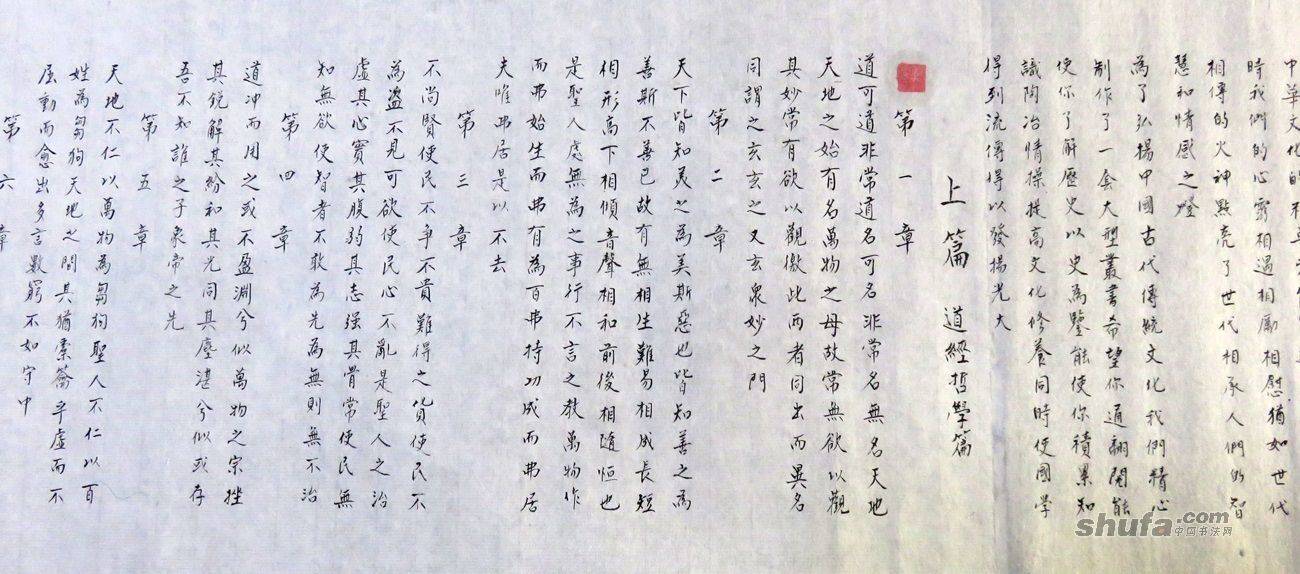 中華文化的
時我們的心靈相遇相勵相慰猶如世代
相傳的火神點亮了世代相承人們的智
慧和情感之燈
為了弘揚中國古代傳統文化我們精心
制作了一套大型叢書希望你通翻開能
使你了解歷史以史為鑒能使你積累知
識陶冶情操提高文化修養同時使國學
得到流傳得以發揚光大
上篇 道經哲學篇
第一章
道可道非常道名可名非常名無名天地
天地之始有名萬物之母故常無欲以觀
其妙常有欲以觀徼此兩者同出而異名
同謂之玄玄之又玄衆妙之門
第二章
天下皆知美之為美斯惡也皆知善之為
善斯不善已故有無相生難易相成長短
相形高下相傾音聲相和前後相隨恒也
是聖人處無為之事行不言之教萬物作
而弗始生而弗有為百弗持功成而弗居
夫唯弗居是以不去
第三章
不尚賢使民不爭不貴難得之貨使民不
為盜不見可欲使民心不亂是聖人之治
虛其心實其腹弱其志强其骨常使民無
知無欲使智者不敢為先為無則無不治
第四章
道冲而用之或不盈淵兮似萬物之宗挫
其銳解其紛和其光同其塵湛兮似或存
吾不知誰之子象帝之先
第五章
天地不仁以萬物為芻狗聖人不仁以百
姓為芻狗天地之間其猶橐籥乎虛而不
屈動而愈出多言數窮不如守中
第六章
shufa.com
中国书法网